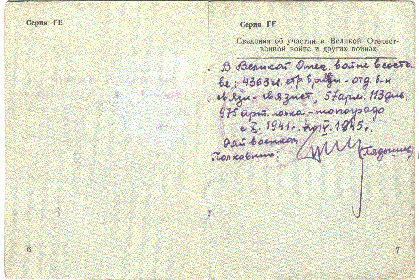 Серия ГЕ
6
Серия ГЕ
Сведения об участии в Великой Отечест-
венной войне и других войнах
В Великой Отеч войне в соста
ве: 4363 стр бриг. - отд. б-н
связи - связист, 57 арм. 113 див.
975 арт. полка - топограф
с X. 1941г. по V. 1945г.
Райвоенком
Полковник:
7